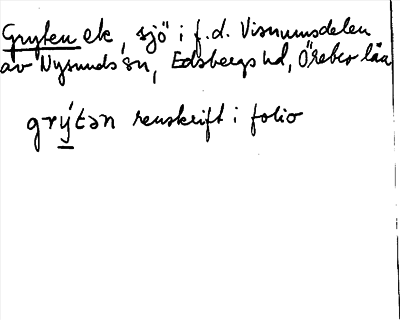 Gryten ek, sjö i f.d. Visnumsdelen
av Nysunds sn, Edsbergs hd, Örebro län
grý̲tən renskrift i folio